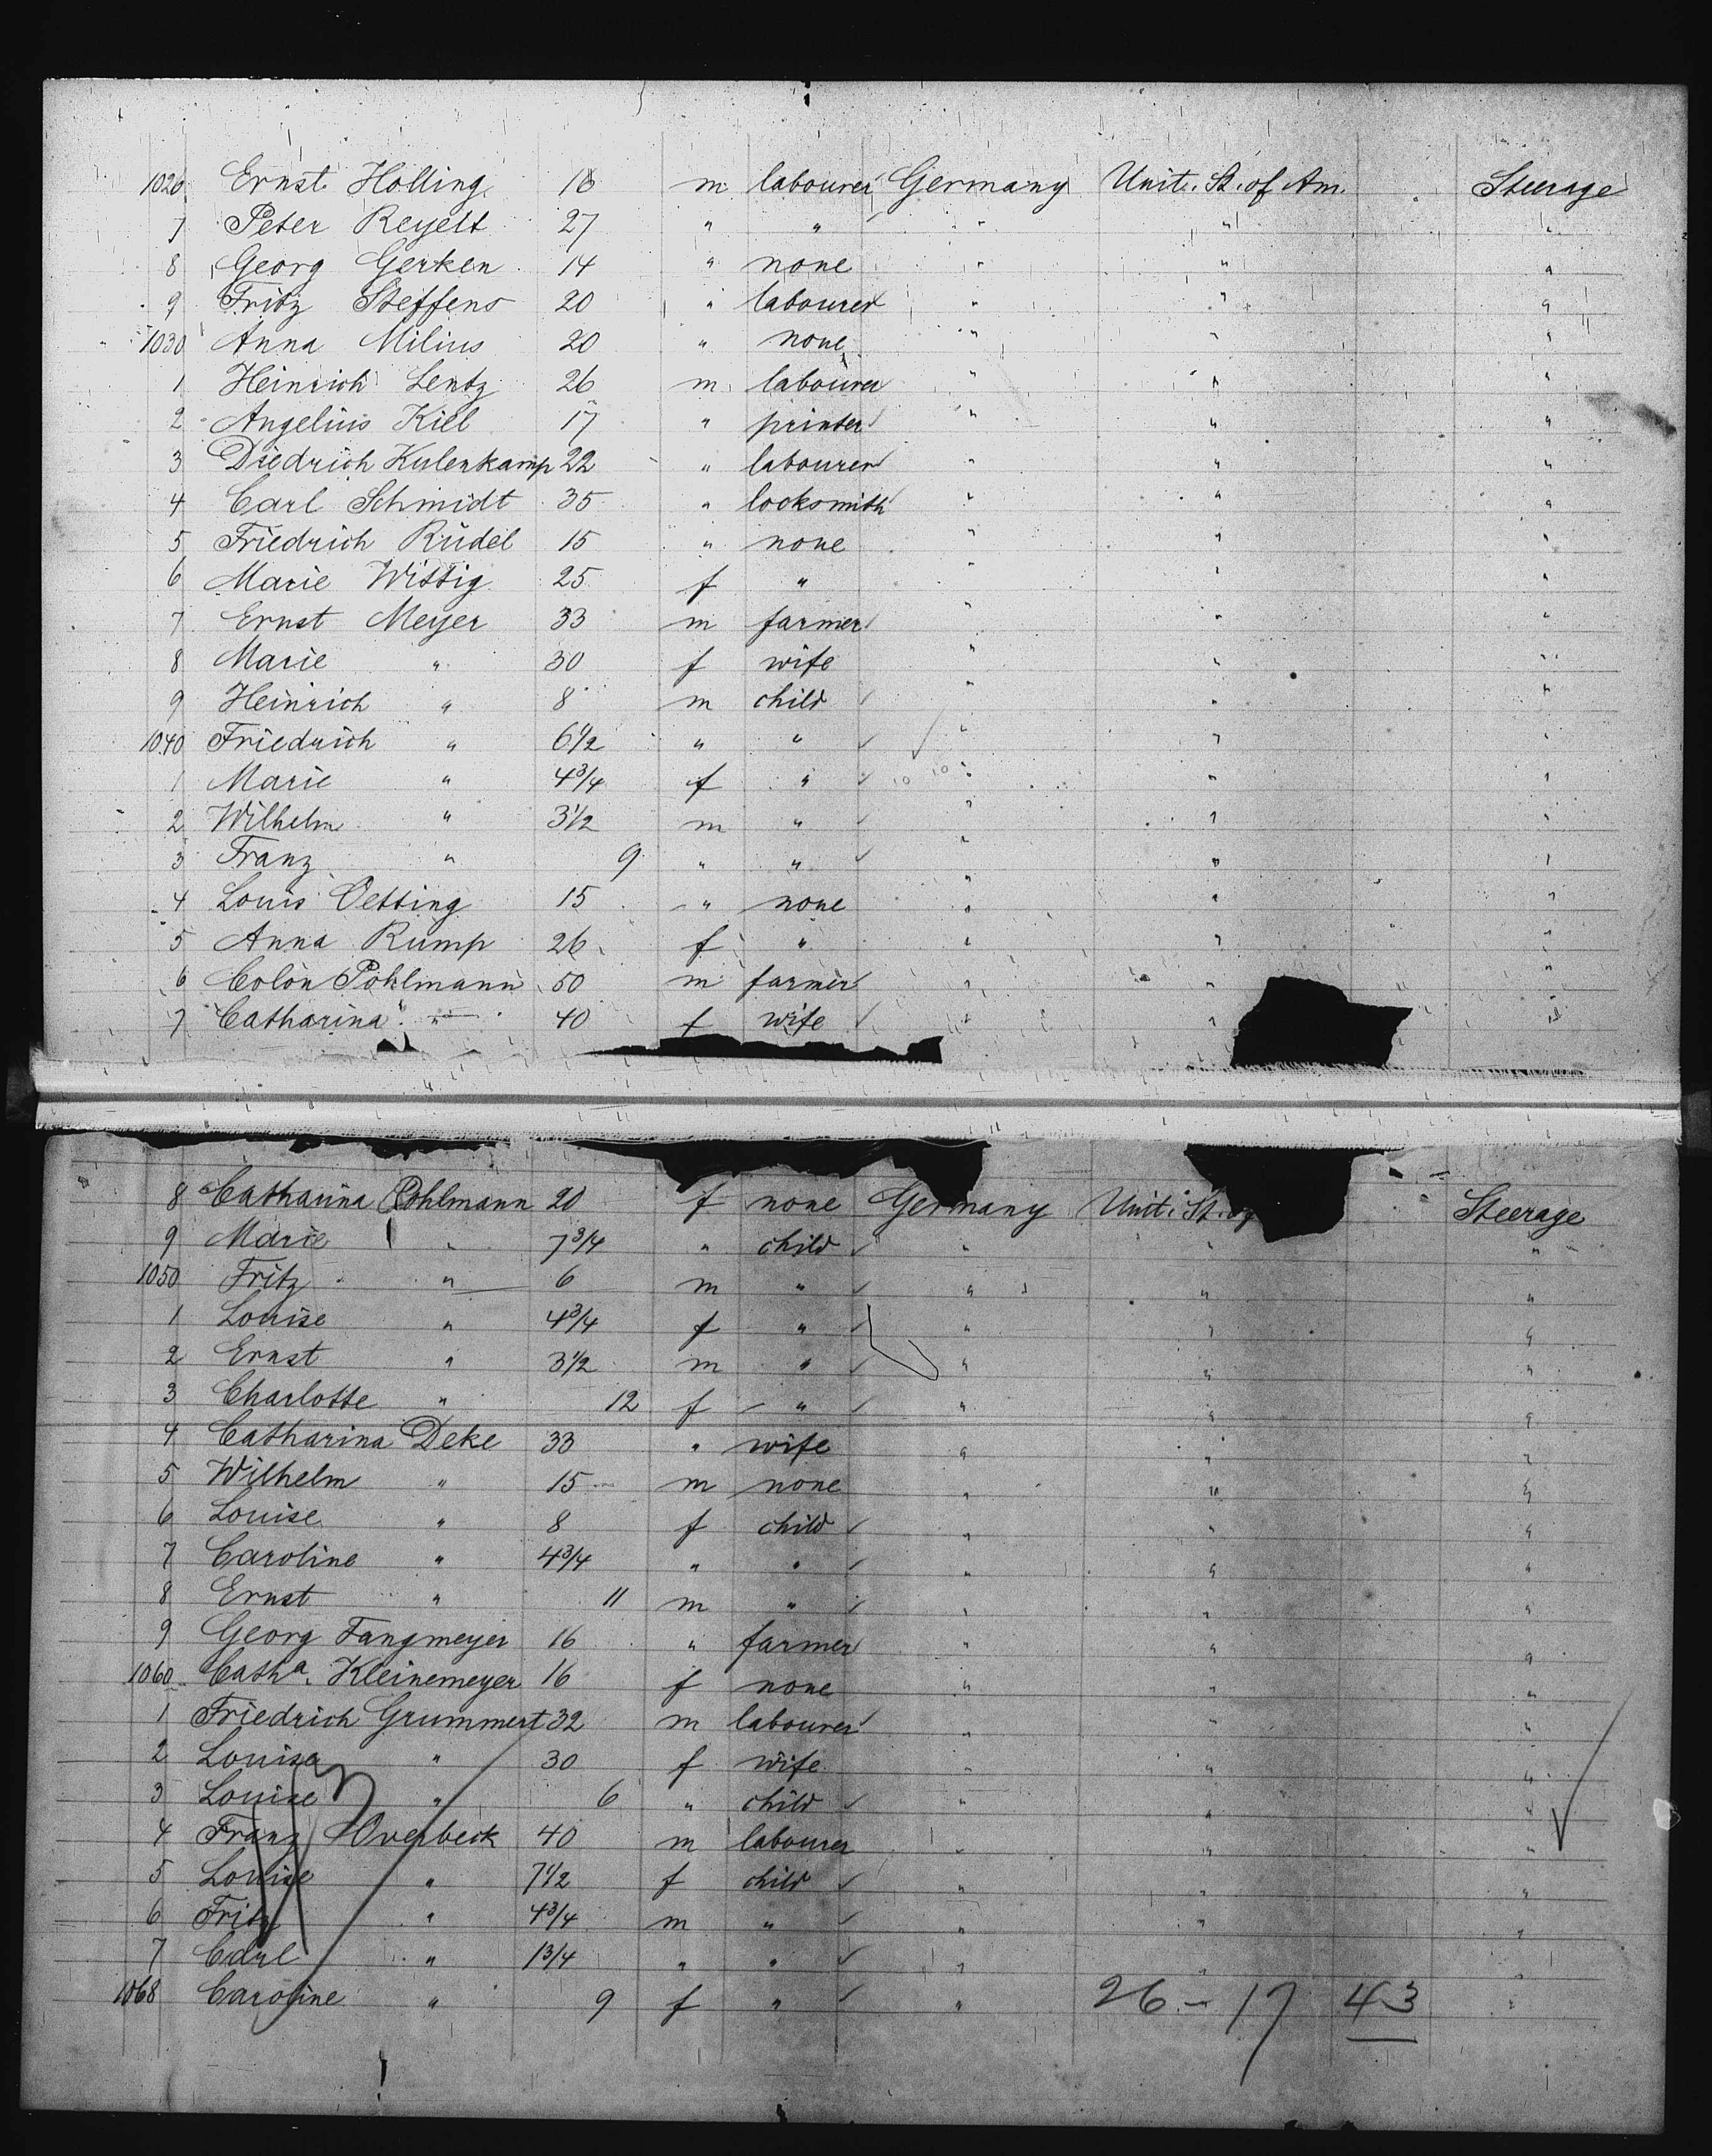 1026 Ernst Holling 18 m labourer Germany Unit. St. of Am. Steerage
7 Peter Reyelt 27 " " " " "
8 Georg Gerken 14 " none " " "
9 Fritz Steffens 20 " labourer " " "
1030 Anna Milius 20 " none " " "
1 Heinrich Lentz 26 m labourer " " "
2 Angelius Kiel 17 " printer " " "
3 Diedrich Kulenkamp 22 " labourer " " "
4 Carl Schmidt 35 " locksmith " " "
5 Friedrich Rüdel 15 " none " " "
6 Marie Wittig 25 f " " " "
7 Ernst Meyer 33 m farmer " " "
8 Marie " 30 f wife " " "
9 Heinrich " 8 m child " " "
1040 Friedrich " 6 1/2 " " " " "
1 Marie " 4 3/4 f " " " "
2 Wilhelm " 3 1/2 m " " " "
3 Franz " 9 " " " " "
4 Louis Oetting 15 " none " " "
5 Anna Rump 26 f " " " "
6 Colon Pohlmann 50 m farmer " " "
7 Catharina " 40 f wife " " "
8 Catharina Pohlmann 20 f none Germany Unit. St. Steerage
9 Marie " 7 3/4 " child " " "
1050 Fritz " 6 m " " " "
1 Louise " 4 3/4 f " " " "
2 Ernst " 3 1/2 m " " " "
3 Charlotte " 12 f " " " "
4 Catharina Deke 33 " wife " " "
5 Wilhelm " 15 m none " " "
6 Louise " 8 f child " " "
7 Caroline " 4 3/4 " " " " "
8 Ernst " 11 m " " " "
9 Georg Fangmeyer 16 " farmer " " "
1060 Catha. Kleinemeyer 16 f none " " "
1 Friedrich Grummert 32 m labourer " " "
2 Louise " 30 f wife " " "
3 Louise " 6 " child " " "
4 Franz Overbeck 40 m labourer " " "
5 Louise " 7 1/2 f child " " "
6 Fritz " 4 3/4 m " " " "
7 Carl " 1 3/4 " " " " "
1068 Caroline " 9 f " " 26 - 17 43 "